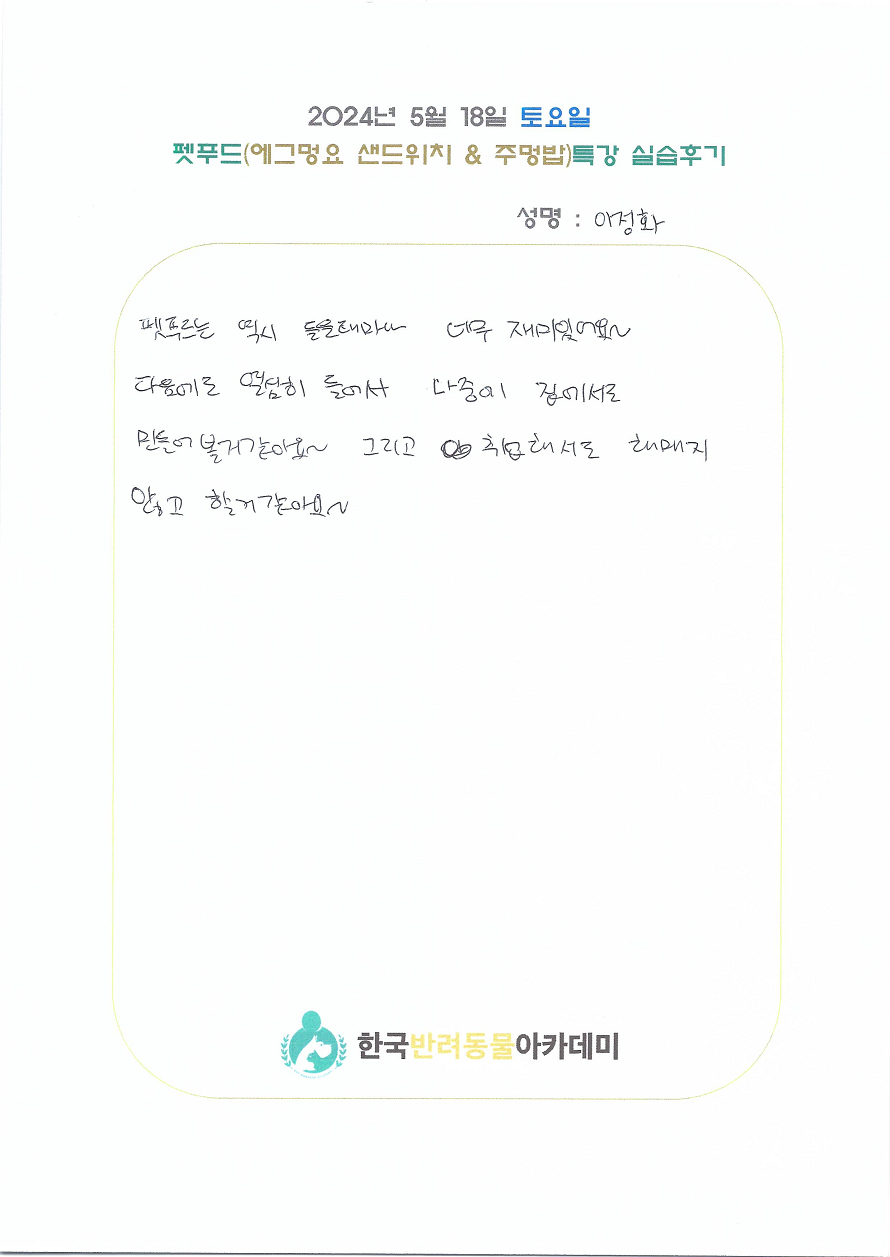 2024년 5월 18일 토요일
펫푸드(에그멍요 샌드위치 & 주멍밥)특강 실습후기
성명 : 이정화
펫푸드는 역시 들을때마다 너무 재미있어요~
다음에도 열심히 들어서 나중에 집에서도
만들어 볼거같아요~ 그리고 취업해서도 헤매지
않고 할거같아요~
한국반려동물아카데미